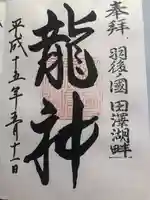 奉拝
羽後之國 田澤湖畔
龍神
平成十五年五月十一日